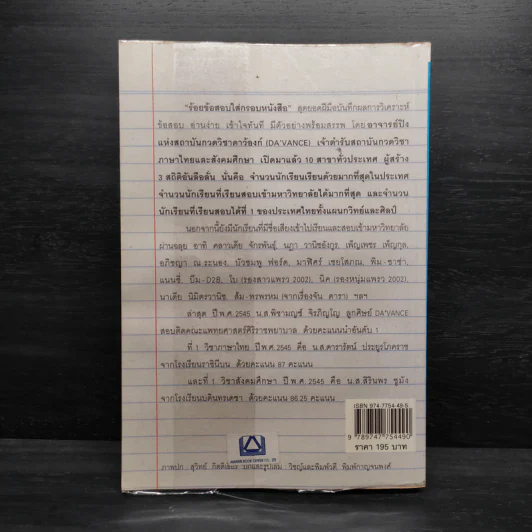 "ร้อยข้อสอบใส่กรอบหนังสือ" สุดยอดฝีมือบันทึกผลการวิเคราะห์
ข้อสอบ อ่านง่าย เข้าใจทันที มีตัวอย่างพร้อมสรรพ โดย อาจารย์ปิง
แห่งสถาบันกวดวิชาดาว้องก์ (DA'VANCE) เจ้าตำรับสถาบันกวดวิชา
ภาษาไทยและสังคมศึกษา เปิดมาแล้ว 10 สาขาทั่วประเทศ ผู้สร้าง
3 สถิติอันลือลั่น นั่นคือ จำนวนนักเรียนเรียนด้วยมากที่สุดในประเทศ
จำนวนนักเรียนที่เรียนสอบเข้ามหาวิทยาลัยได้มากที่สุด และจำนวน
นักเรียนที่เรียนสอบได้ที่ 1 ของประเทศไทยทั้งแผนกวิทย์และศิลป์
นอกจากนี้ยังมีนักเรียนที่มีชื่อเสียงเข้าไปเรียนและสอบเข้ามหาวิทยาลัย
ผ่านฉลุย อาทิ คลาวเดีย จักรพันธุ์, นฎา วานิชอังกูร, เพ็ญเพชร เพ็ญกุล,
อภิชญา ณ ระนอง, บัวชมพู ฟอร์ด, มาฬิศร์ เชยโสภณ, พิม-ซาซ่า,
แนนซี่, บีม-D2B, โบ (รองสาวแพรว 2002), นิค (รองหนุ่มแพรว 2002),
นาเดีย นิมิตรวานิช, ส้ม-พรพรหม (จากเรื่องจัน ดารา) ฯลฯ
ล่าสุด ปีพ.ศ.2545 น.ส.พิชามญชุ์ จิรภิญโญ ลูกศิษย์ DA'VANCE
สอบติดคณะแพทยศาสตร์ศิริราชพยาบาล ด้วยคะแนนนำอันดับ 1
ที่ 1 วิชาภาษาไทย ปีพ.ศ.2545 คือ น.ส.ดารารัตน์ ประยูรโภคราช
จากโรงเรียนราชินีบน ด้วยคะแนน 87 คะแนน
และที่ 1 วิชาสังคมศึกษา ปีพ.ศ.2545 คือ น.ส.สิรินพร ชูมัง
จากโรงเรียนบดินทรเดชา ด้วยคะแนน 86.25 คะแนน
ISBN 974-7754-49-5
9 789747 754490
ราคา 195 บาท